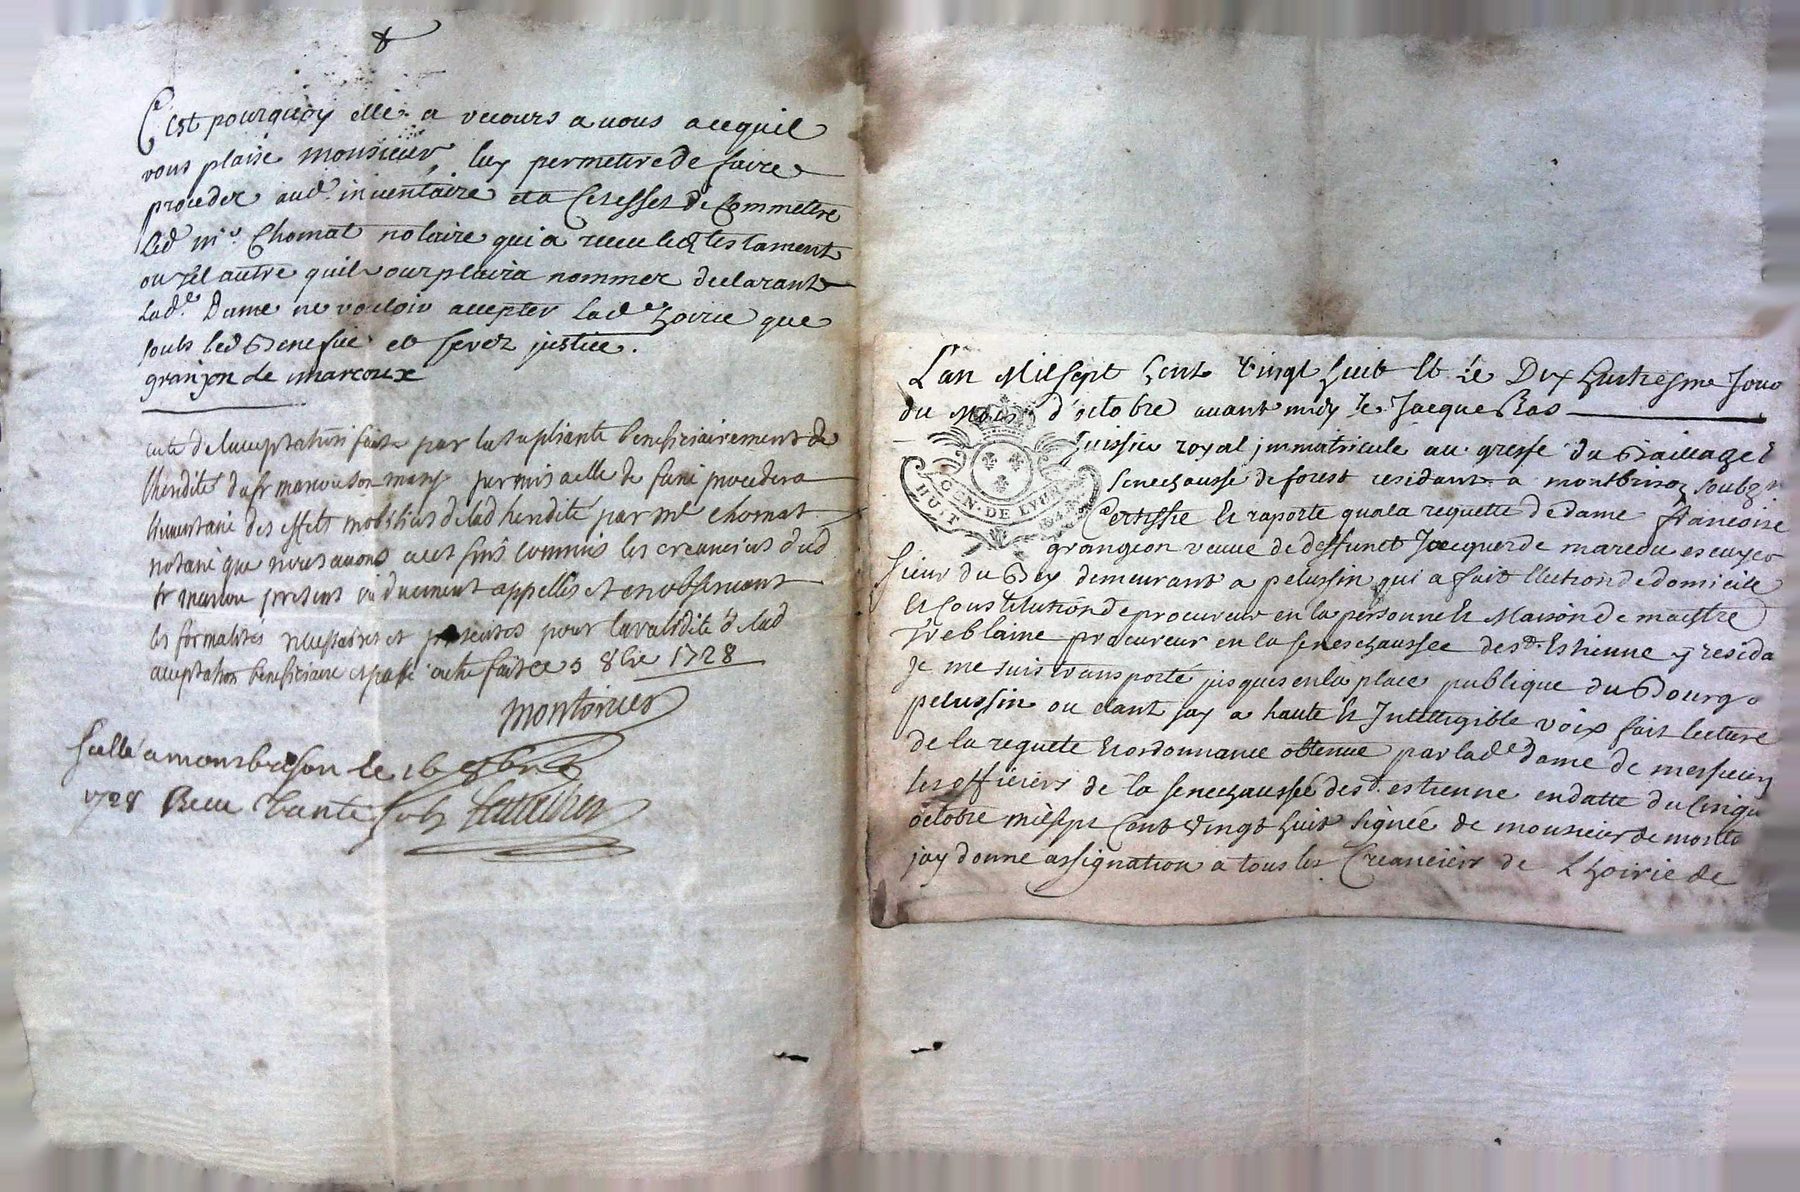 C'est pourquoy elle a recours a vous a ce quil
vous plaise monsieur, luy permettre de faire
proceder aud. inventaire et a cet effet de Commettre
led me. Chomat notaire qui a receu led testament
ou tel autre quil vour plaira nommer declarant
Lad.e Dame ne vouloir accepter Lad.e hoirie que
soubs led Benefice et ferez justice.
granjon de marcoux
acte de lacceptation faite par la supliante beneficiairement de
lheredité du sr marcou son mary permis a elle de faire proceder a
linventaire des effets mobiliers de lad heredité par me chomat
notaire que nous avons a cet fins commis les creanciers dud
sr marcou presens ou duement appellés et en observant
les formalités necessaires et pour la validité de lad
acceptation beneficiaire et fait ce 5 8bre 1728
Scellé a montbrison le 16 8bre
1728 Receu trente sols
L'an Mil sept Cent vingt huit Et le Dix huitiesme Jour
du Mois d'octobre avant midy Je Jacque Ras
huissier royal immatricule au greffe du Baillage &
senechaussé de forest residant a montbrison soubz.
Certiffie & raporte qua la requette de dame francoise
HUIT
GEN. DE LYON
grangeon veuve de deffunct Jacques de marcou escuyer
sieur du Bex demeurant a pelussin qui a fait Election de domicile
et Constitution de procureur en la personne & Maison de maistre
treblaine procureur en la seneschaussee de st. Estienne y resida
Je me suis transporté jusques en la place publique du Bourg
pelussin ou etant jay a haute & Intelligible voix fait lecture
de la requete & ordonnance obtenue par lad.e dame de messieurs
les officiers de la senechaussée de st. estienne en datte du Cinqu
octobre mil sept Cent vingt huit signée de monsieur de
jay donne assignation a tous les Creanciers de Lhoirie de